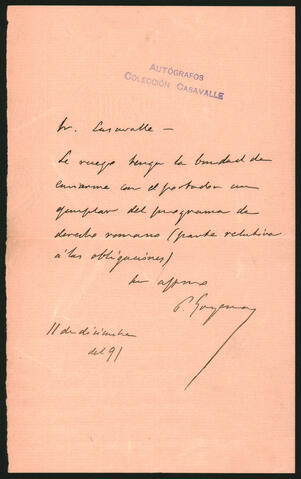 AUTÓGRAFOS
COLECCIÓN CASAVALLE
Sr. Casavalle –
Le ruego tenga la bondad de
enviarme con el portador un
ejemplar del programa de
derecho romano (parte relativa
á las obligaciones)
su affmo
P. Goyena
11 de diciembre
del 91